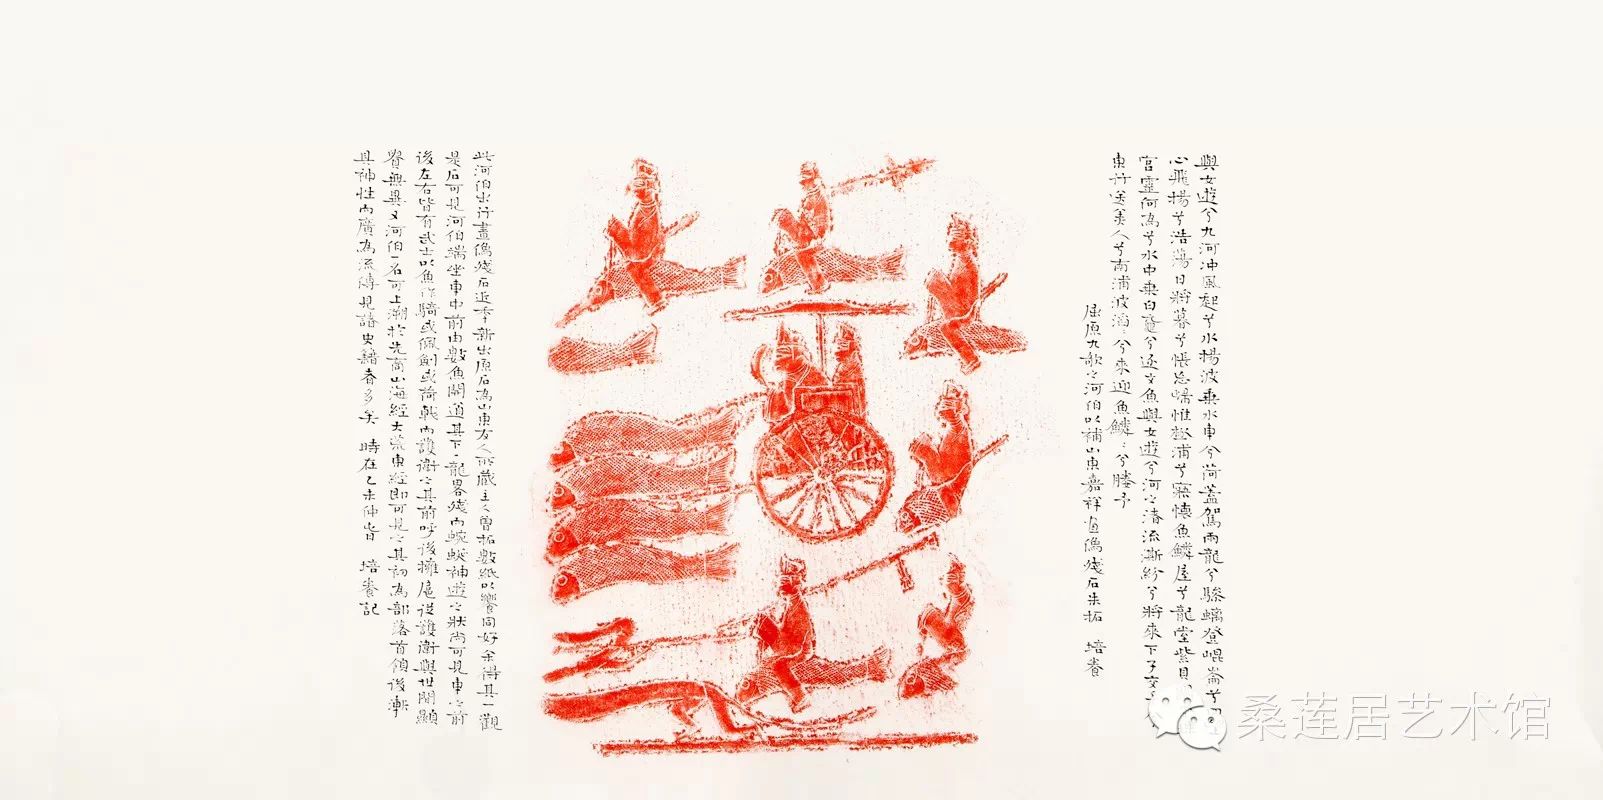 與女遊兮九河冲風起兮水揚波乘水車兮荷蓋駕兩龍兮驂螭登崐崙兮四望
心飛揚兮浩蕩日將暮兮悵忘歸惟極浦兮寤懷魚鱗屋兮龍堂紫貝
宮靈何為兮水中乘白黿兮逐文魚與女遊兮河之渚流澌紛兮將來下子交手
東行送美人兮南浦波滔滔兮來迎魚鱗鱗兮媵予
屈原九歌之河伯以補山東嘉祥畫像殘石朱拓 培養
此河伯出行畫像殘石近年新出原石為山東友人所藏主人曾拓數紙以饗同好余得其一觀
是石可見河伯端坐車中前由數魚開道其下一龍畧殘而蜿蜒神遊之狀尚可見車之前
後左右皆有武士以魚作騎或佩劍或荷戟而護衛之其前呼後擁扈從護衛與世間顯
貴無異又河伯一名可上溯於先商山海經大荒東經即可見之其初為部落首領後漸
具神性而廣為流傳見諸史籍者多矣 時在乙未仲春 培養記
桑莲居艺术馆